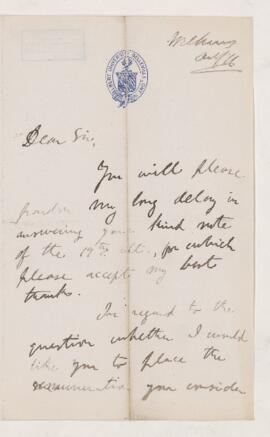 Dear Sir,
You will please
pardon my long delay in
answering your kind note
of the 19th ult., for which
please accept my best
thanks.
In regard to the
question whether I would
like you to place the
remuneration you consider